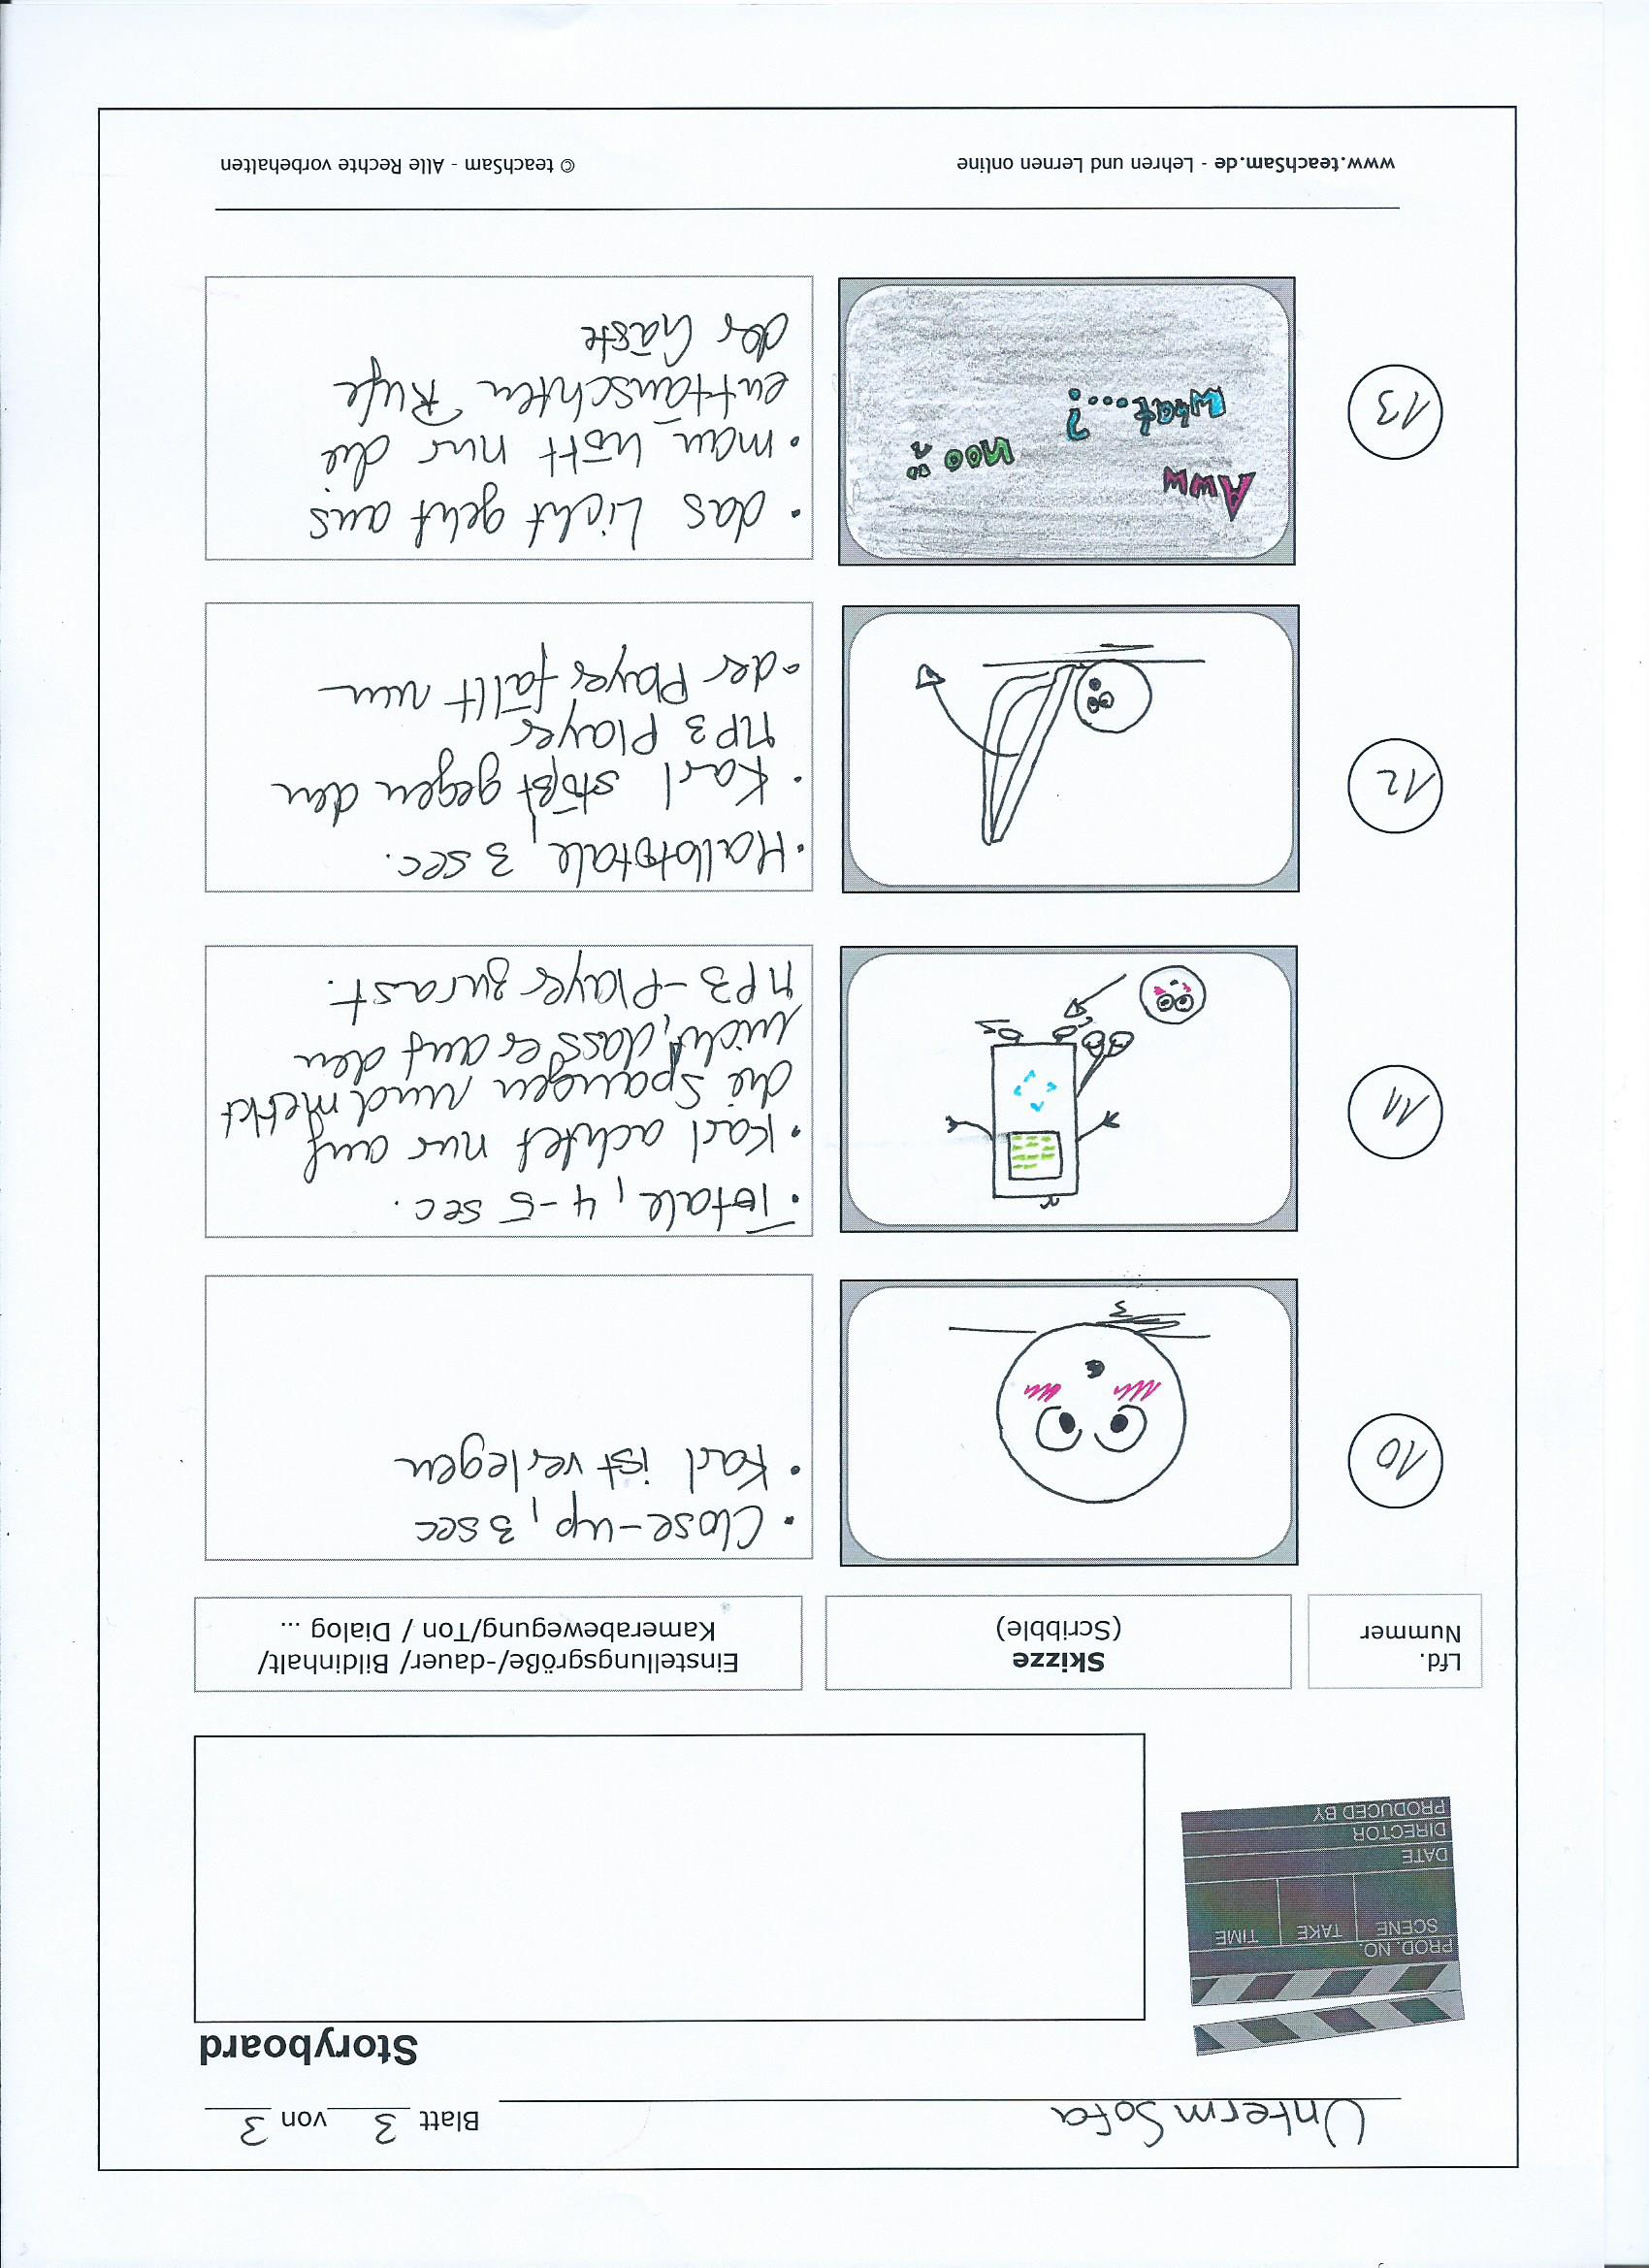 Unterm Sofa
Blatt 3 von 3
Storyboard
PROD. NO.
SCENE TAKE TIME
DATE
DIRECTOR
PRODUCED BY
Lfd.
Nummer
Skizze
(Scribble)
Einstellungsgröße/-dauer/ Bildinhalt/
Kamerabewegung/Ton / Dialog ...
10
• Close-up, 3 sec
• Karl ist verlegen
11
• Totale, 4-5 sec.
• Karl achtet nur auf
die Spangen und merkt
nicht, dass er auf den
MP3-Player zurast.
12
• Halbtotale, 3 sec.
• Karl stößt gegen den
MP3 Player
• der Player fällt um
13
Aww
noo
What....?
• das Licht geht aus
• man hört nur die
enttäuschten Rufe
der Gäste
www.teachSam.de - Lehren und Lernen online
© teachSam - Alle Rechte vorbehalten